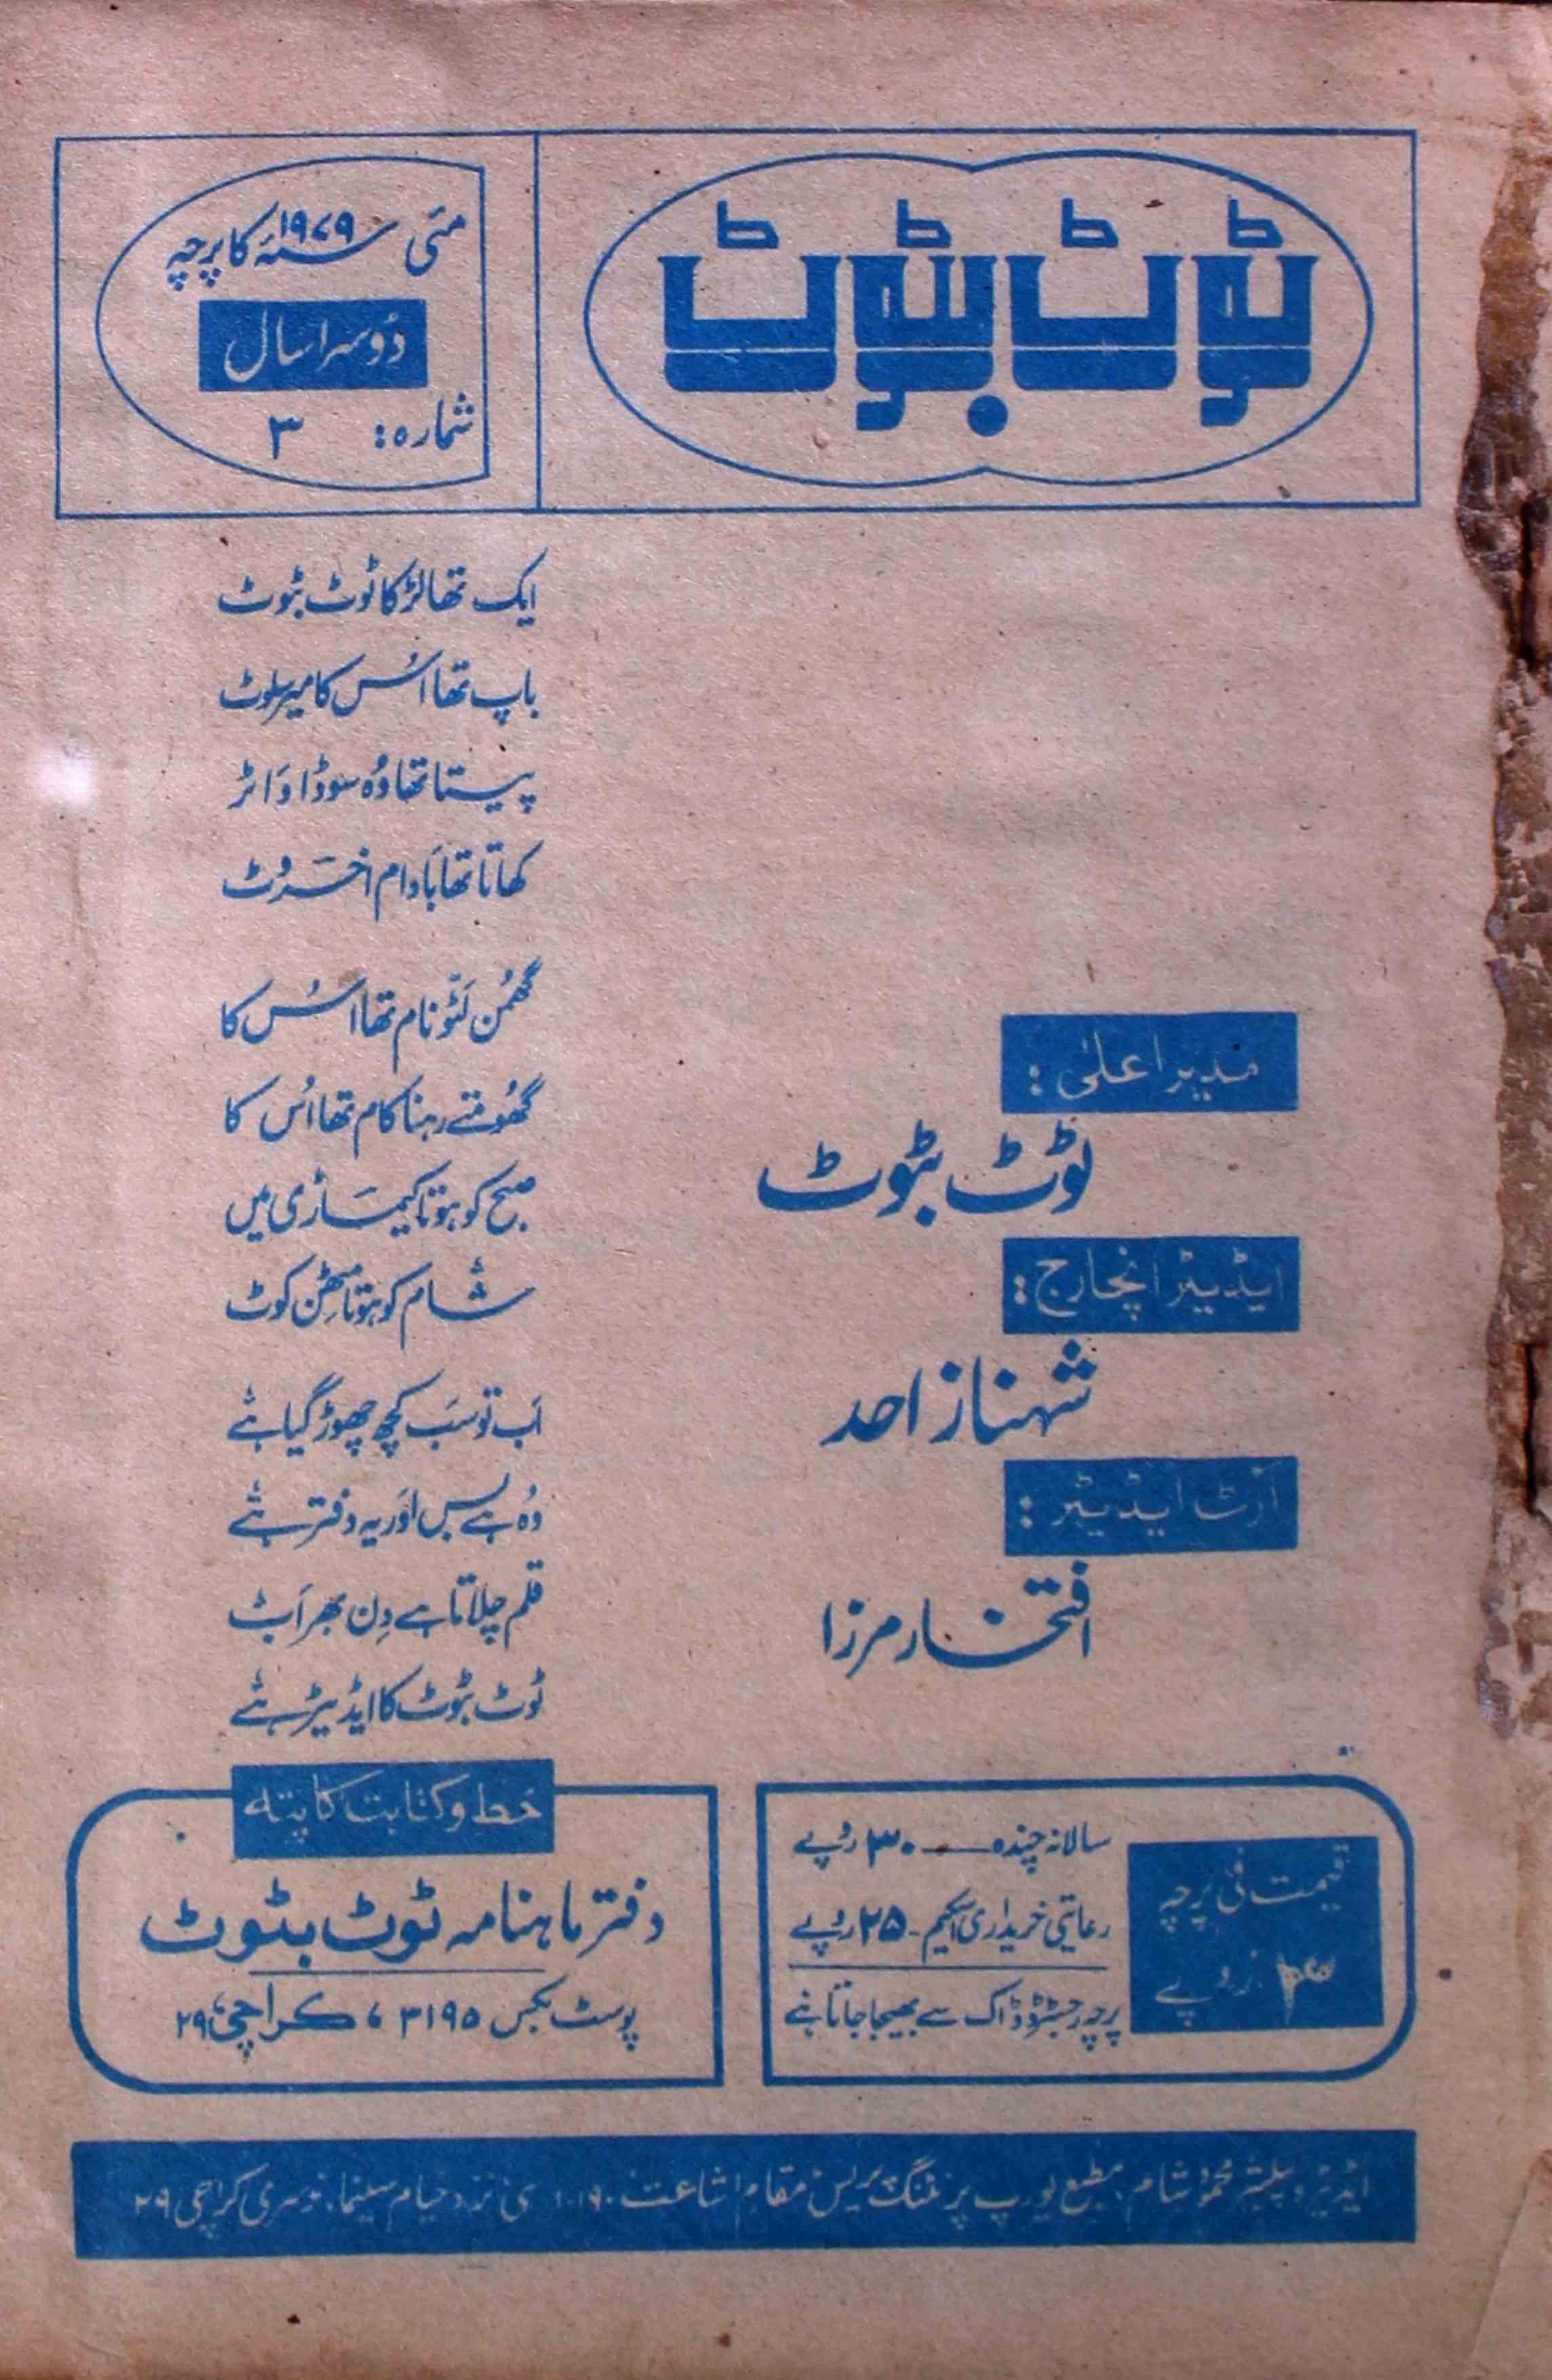 ٹوٹ بٹوٹ
مئی ۱۹۷۹ء کا پرچہ
دُوسرا سال
شمارہ: ۳
ایک تھا لڑکا ٹوٹ بٹوٹ
باپ تھا اُس کا میر سلوٹ
پیتا تھا وُہ سوڈا واٹر
کھاتا تھا بادام اخروٹ
گھُمن لٹّو نام تھا اُس کا
گھُومتے رہنا کام تھا اُس کا
صبح کو ہوتا کیماڑی میں
شام کو ہوتا مِٹھن کوٹ
اَب تو سَب کچھ چھوڑ گیا ہے
وُہ ہے بس اور یہ دفتر ہے
قلم چلاتا ہے دِن بھر اَب
ٹوٹ بٹوٹ کا ایڈیٹر ہے
مدیر اعلیٰ:
ٹوٹ بٹوٹ
ایڈیٹر انچارج:
شہناز احمد
آرٹ ایڈیٹر:
افتخار مرزا
قیمت فی پرچہ
۳ روپے
سالانہ چندہ — ۳۰ روپے
رعایتی خریداری اسکیم - ۲۵ روپے
پرچہ رجسٹرڈ ڈاک سے بھیجا جاتا ہے
خط و کتابت کا پتہ
دفتر ماہنامہ ٹوٹ بٹوٹ
پوسٹ بکس ۳۱۹۵ ، کراچی ۲۹
ایڈیٹر و پبلشر محمود شام، مطبع یورپ پرنٹنگ پریس مقام اشاعت سی نزد خیام سینما، نرسری کراچی ۲۹